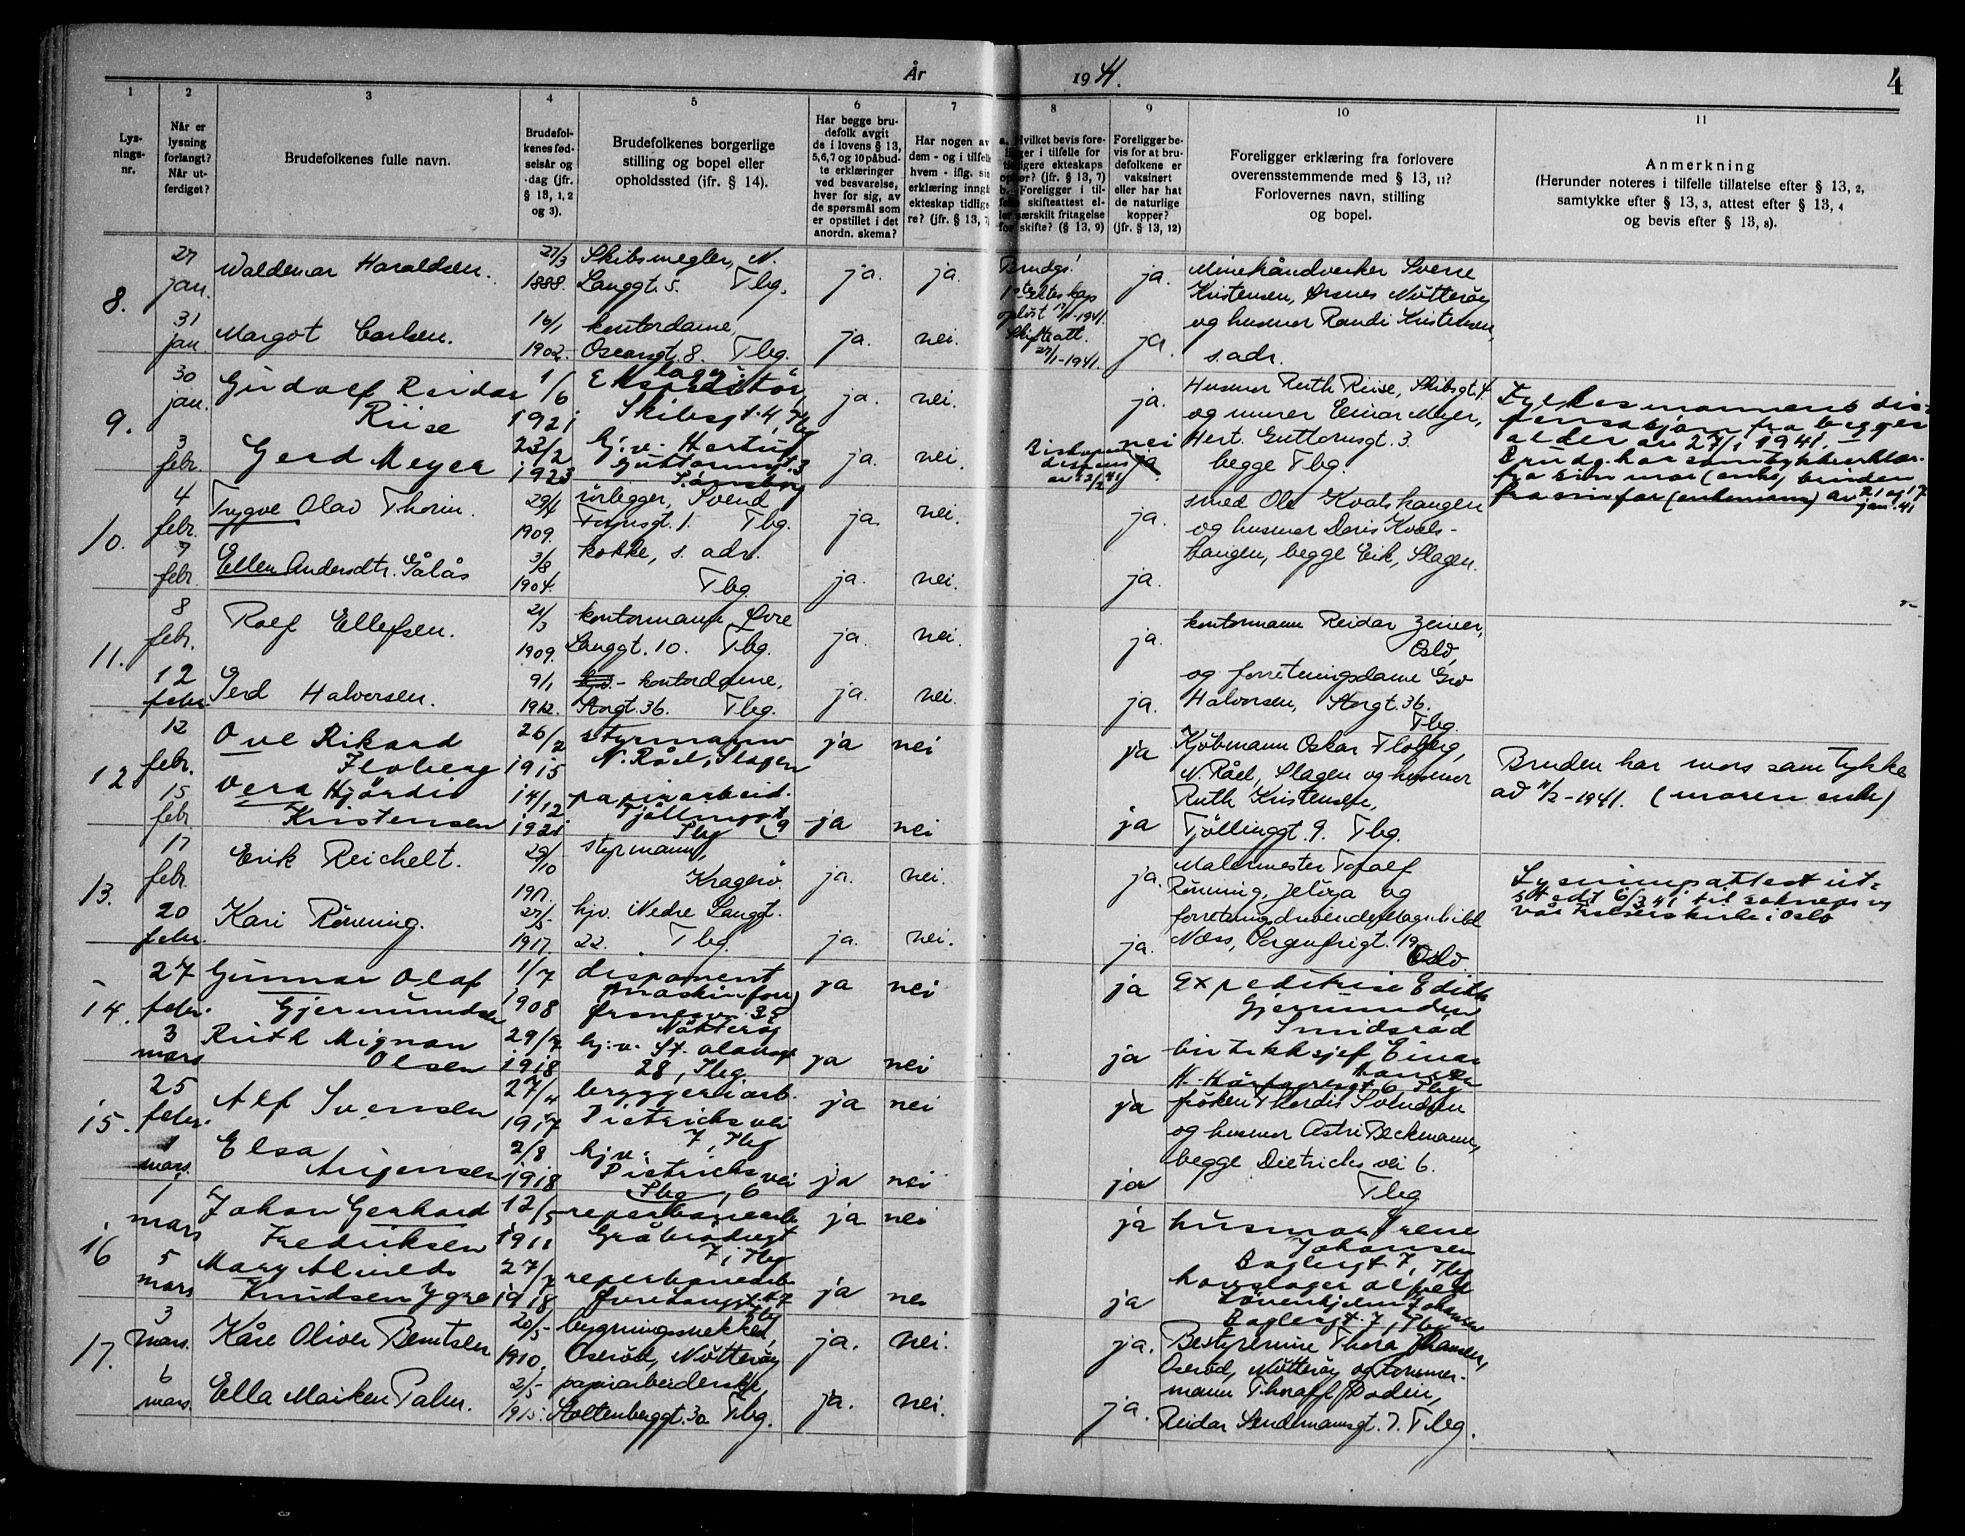 År 1941.
4
1 2 3 4 5 6 7 8 9 10 11
Lys-
nings-
nr.
Når er
lysning
forlangt?
Når ut-
ferdiget?
Brudefolkenes fulle navn.
Brudefol-
kenes fød-
selsår og
-dag (jfr.
§ 13, 1, 2
og 3).
Brudefolkenes borgerlige
stilling og bopel eller
opholdssted (ifr. § 14).
Har begge bru-
defolk avgit
de i lovens § 13,
5,6,7 og 10 påbud-
te erklæringer
ved besvarelse,
hver for sig, av
de spørsmål som
er opstillet i det
anordn. skema?
Har nogen av
dem - og i tilfelle
hvem - iflg. sin
erklæring inngå
ekteskap tidlige-
re? (jfr. § 13,
a. Hvilket bevis fore-
ligger i tilfelle for
tidligere ekteskaps
ophør? (jfr. § 13, 7)
b. Foreligger i til-
felle skifteattest el-
ler særskilt fritagelse
for skifte? (§ 13, 9)
Foreligger be-
vis for at bru-
defolkene er
vaksinert
eller har hat
de naturlige
kopper?
(jfr. § 13, 12)
Foreligger erklæring fra forlovere
overensstemmende med § 13, 11?
Forlovernes navn, stilling
og bopel.
Anmerkning
(Herunder noteres i tilfelle tillatelse efter § 13, 2,
samtykke efter § 13, 3, attest efter § 13, 4
og bevis efter § 13, 8).
8.
27
jan.
Waldemar Haraldsen.
27/3
1888.
Skibsmegler, N.
Langgt. 5. Tbg.
ja. ja.
Brudgs.
1ste ekteskap
opløst 1941.
Skifteatt.
27/1-1941.
ja.
Minehåndverker Sverre
Kristensen, Ørsnes Nøtterøy
og husmor Randi Kristensen,
s. adr.
31
jan.
Margot Carlsen.
16/1
1902.
kontordame,
Oscarsgt. 8. Tbg.
ja. nei. ja.
9.
30
jan.
Gudolf Reidar
Riise
1/6
1921
Ekspeditør,
Skibsgt. 4, Tbg
ja. nei. ja.
Husmor Ruth Riise, Skibsgt. 4.
og murer Einar Meyer,
Hert. Guttormsgt. 3.
begge Tbg.
Fylkesmannens dis-
pensasjon fra begges
alder av 27/1 1941. –
Brudg. har samtykkeerklær.
fra sin mor (enke), bruden
fra sin far (enkemann) av 21 og 17
jan. 41
3
febr.
Gerd Meyer
23/2
1923
hj.v. Hertug
Guttormsgt. 3
Tønsberg
ja. nei.
nei
10.
4
febr.
Trygve Olav Thorin.
29/4
1909.
rørlegger, Svend
Foynsgt. 1. Tbg.
ja. nei. ja.
smed Ole Kvalshaugen
og husmor Doris Kvals-
haugen, begge Eik, Slagen.
7
febr.
Ellen Andersdtr. Gålås
3/8
1904.
kokke, s. adr.
Tbg.
ja. nei. ja.
11.
8
febr.
Rolf Ellefsen.
21/3
1909.
kontormann, Øvre
Langgt. 10. Tbg.
ja. nei. ja.
kontormann Reidar Zeiner,
Oslo,
og forretningsdame Gro
Halvorsen, Storgt. 36.
Tbg.
12
febr.
Gerd Halvorsen.
9/1
1912.
kontordame,
Storgt. 36. Tbg.
ja. nei. ja.
12
12
febr.
Ove Rikard
Floberg
26/2
1915
styrmann
N. Råel, Slagen
ja nei ja
Kjøbmann Oskar Floberg,
N. Råel, Slagen og husmor
Ruth Kristensen,
Tjøllinggt. 9. Tbg.
Bruden har mors samtykke
ad 11/2-1941. (moren enke)
15
febr
Vera Hjördis
Kristensen
14/12
1921
papirarbeid.
Tjöllinggt
9
Tbg
ja nei ja
13.
17
febr.
Erik Reichelt.
29/10
1917.
styrmann,
Kragerø.
ja. nei. ja.
Malermester Torolf
Rønning, Jeløya og
forretningsdrivende Ragnhild
Næss, Sorgenfrigt. 19
Oslo.
Lysningsattest ut-
stedt 6/3 41 til sokneprest
vår Frelsers kirke i Oslo
20
febr.
Kari Rönning.
1917.
hjv. Nedre Langgt.
22. Tbg.
ja. nei. ja.
14.
27
febr.
Gunnar Olaf
Gjermundsen
1/7
1908
disponent
(maskinforr)
Ørsnesv. 35
Nøtterøy
ja nei ja
Expeditrise Edith
Gjermundsen
Smidsrød
butikksjef Einar
Hansen
H. Hårfagresgt 6, Tbg
3
mars
Ruth Mignon
Olsen
29/7
1918
hj.v. St. Olavsgt
28, Tbg
ja nei ja
15.
25
febr.
Alf Svensen
27/4
1917
bryggeriarb.
Dietrichs vei
7, Tbg
ja nei ja
frøken Thordis Svendsen
og husmor Astri Beckmann,
begge Dietrichs vei 6.
Tbg
1
mars.
Elsa
Jörgensen
2/8
1918
hj.v.
Dietrichs vei
Tbg, 6
ja nei ja
16
1
mars
Johan Gerhard
Fredriksen
12/5
1911
reperbanearb
Gråbrødregt
7, Tbg
ja nei ja
husmor Irene
Johansen
Baglergt 7, Tbg
hovslager Alfred
Lövenhjelm Johansen
Baglergt. 7, Tbg
5
mars
Mary Alvilde
Knudsen Ygre
27/7
1918
reperbanearb
Øvre Langgt. 47
Tbg
ja nei ja
17.
3
mars.
Kåre Oliver Berntsen
20/5
1910.
bygningssnekker,
Oserød, Nøtterøy
ja. nei. ja.
Bestyrerinne Thora Johansen,
Oserød, Nøtterøy og tømmer-
mann Thoralf Bodin,
Reidar Sendemannsgt. 7. Tbg.
6
mars.
Ella Maiken Palm.
2/5
1915.
papirarbeiderske,
Stoltenberggt. 30 Tbg.
ja. nei. ja.